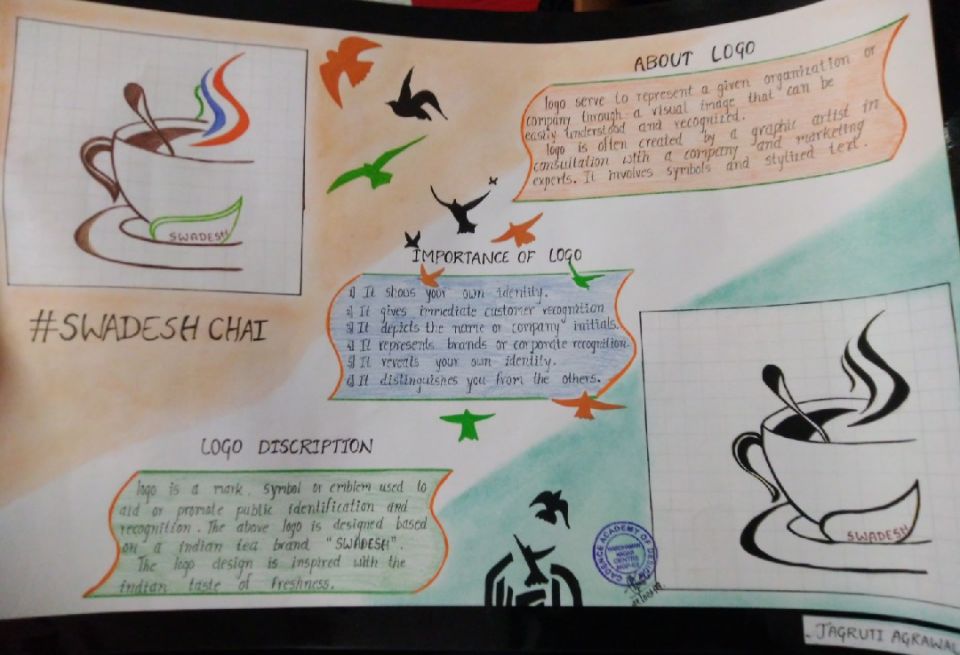 ABOUT LOGO
logo serve to represent a given organization or
company through a visual image that can be
easily understood and recognized.
logo is often created by a graphic artist in
consultation with a company and marketing
experts. It involves symbols and stylized text.
SWADESH
#SWADESH CHAI
IMPORTANCE OF LOGO
1) It shows your own identity.
2) It gives immediate customer recognition
3) It depicts the name or company initials.
4) It represents brands or corporate recognition.
5) It reveals your own identity.
6) It distinguishes you from the others.
LOGO DISCRIPTION
logo is a mark, symbol or emblem used to
aid or promote public identification and
recognition. The above logo is designed based
on a indian tea brand "SWADESH".
The logo design is inspired with the
indian taste of freshness.
SWADESH
CADENCE ACADEMY OF DESIGN
CENTRE
- JAGRUTI AGRAWAL